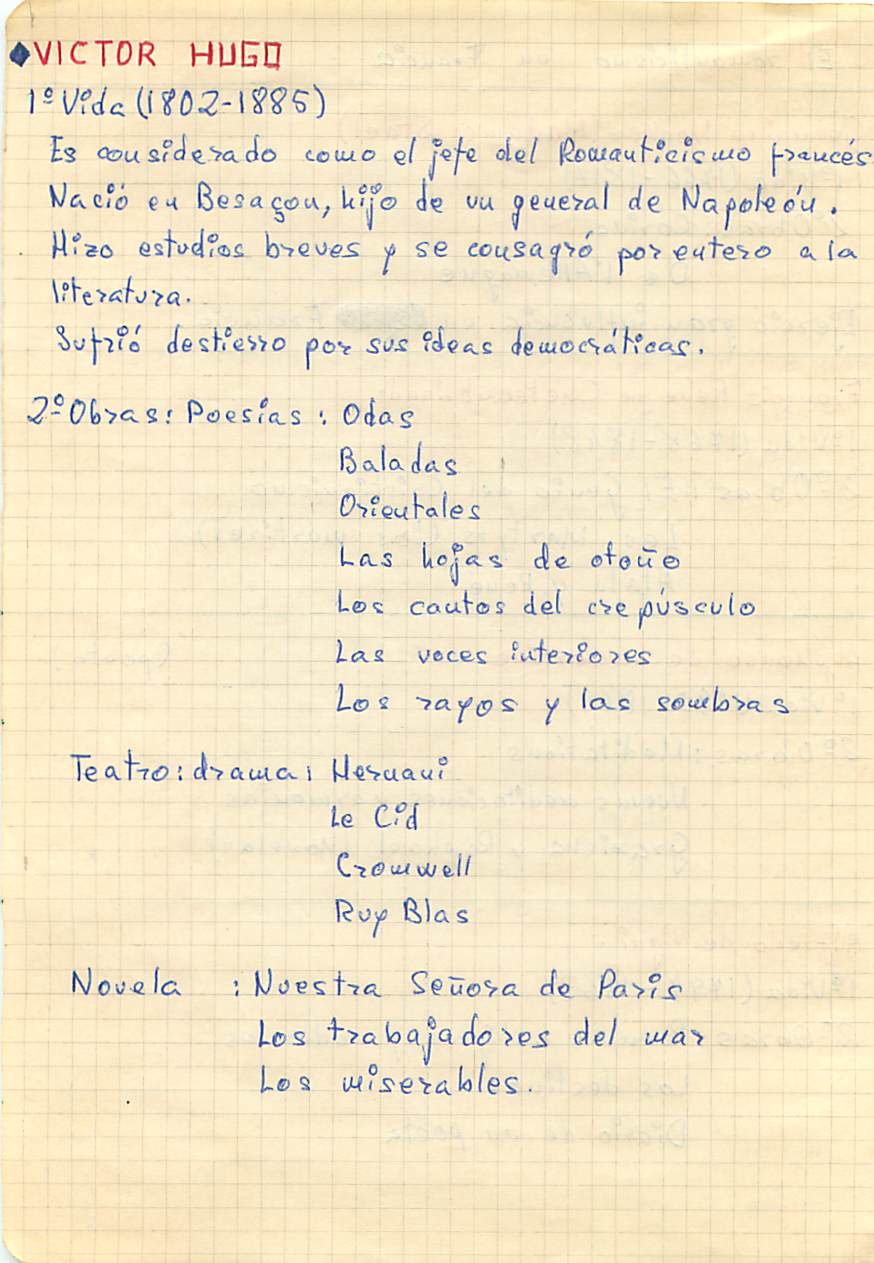 VICTOR HUGO
1º Vida (1802-1885)
Es considerado como el jefe del Romanticismo francés
Nació en Besaçon, hijo de un general de Napoleón.
Hizo estudios breves y se consagró por entero a la
literatura.
Sufrió destierro por sus ideas democráticas.
2º Obras: Poesías: Odas
Baladas
Orientales
Las hojas de otoño
Los cantos del crepúsculo
Las voces interiores
Los rayos y las sombras
Teatro: drama: Hernani
Le Cid
Cromwell
Ruy Blas
Novela : Nuestra Señora de Paris
Los trabajadores del mar
Los miserables.